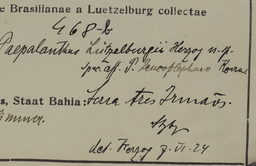 e Brasilianae a Luetzelburg collectae
468-b
Paepalanthus Lützelburgii Herzog n. sp.
spec. aff. P. leucoblepharo Koern.
s, Staat Bahia: Serra tres Irmãos.
det. Herzog 7.VI.24